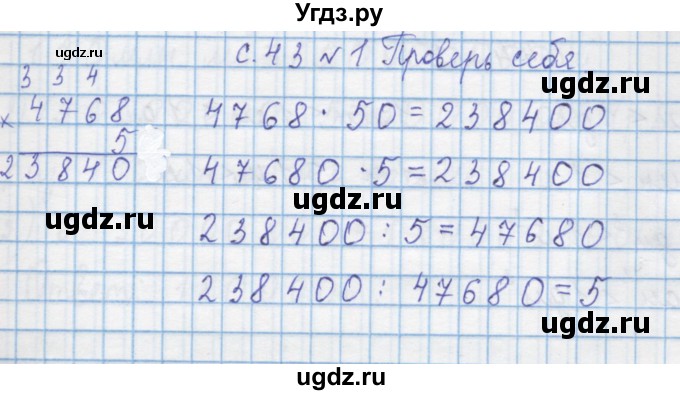 Угдз.ру
с. 43 №1 Проверь себя
ugdz.ru ugdz.ru
3 3 4
× 4768
5
23840
4768 · 50 = 238400
ugdz.ru
47680 · 5 = 238400
ugdz.ru ugdz.ru
238400 : 5 = 47680
ugdz.ru ugdz.ru
238400 : 47680 = 5
ugdz.ru
ugdz.ru
ugdz.ru